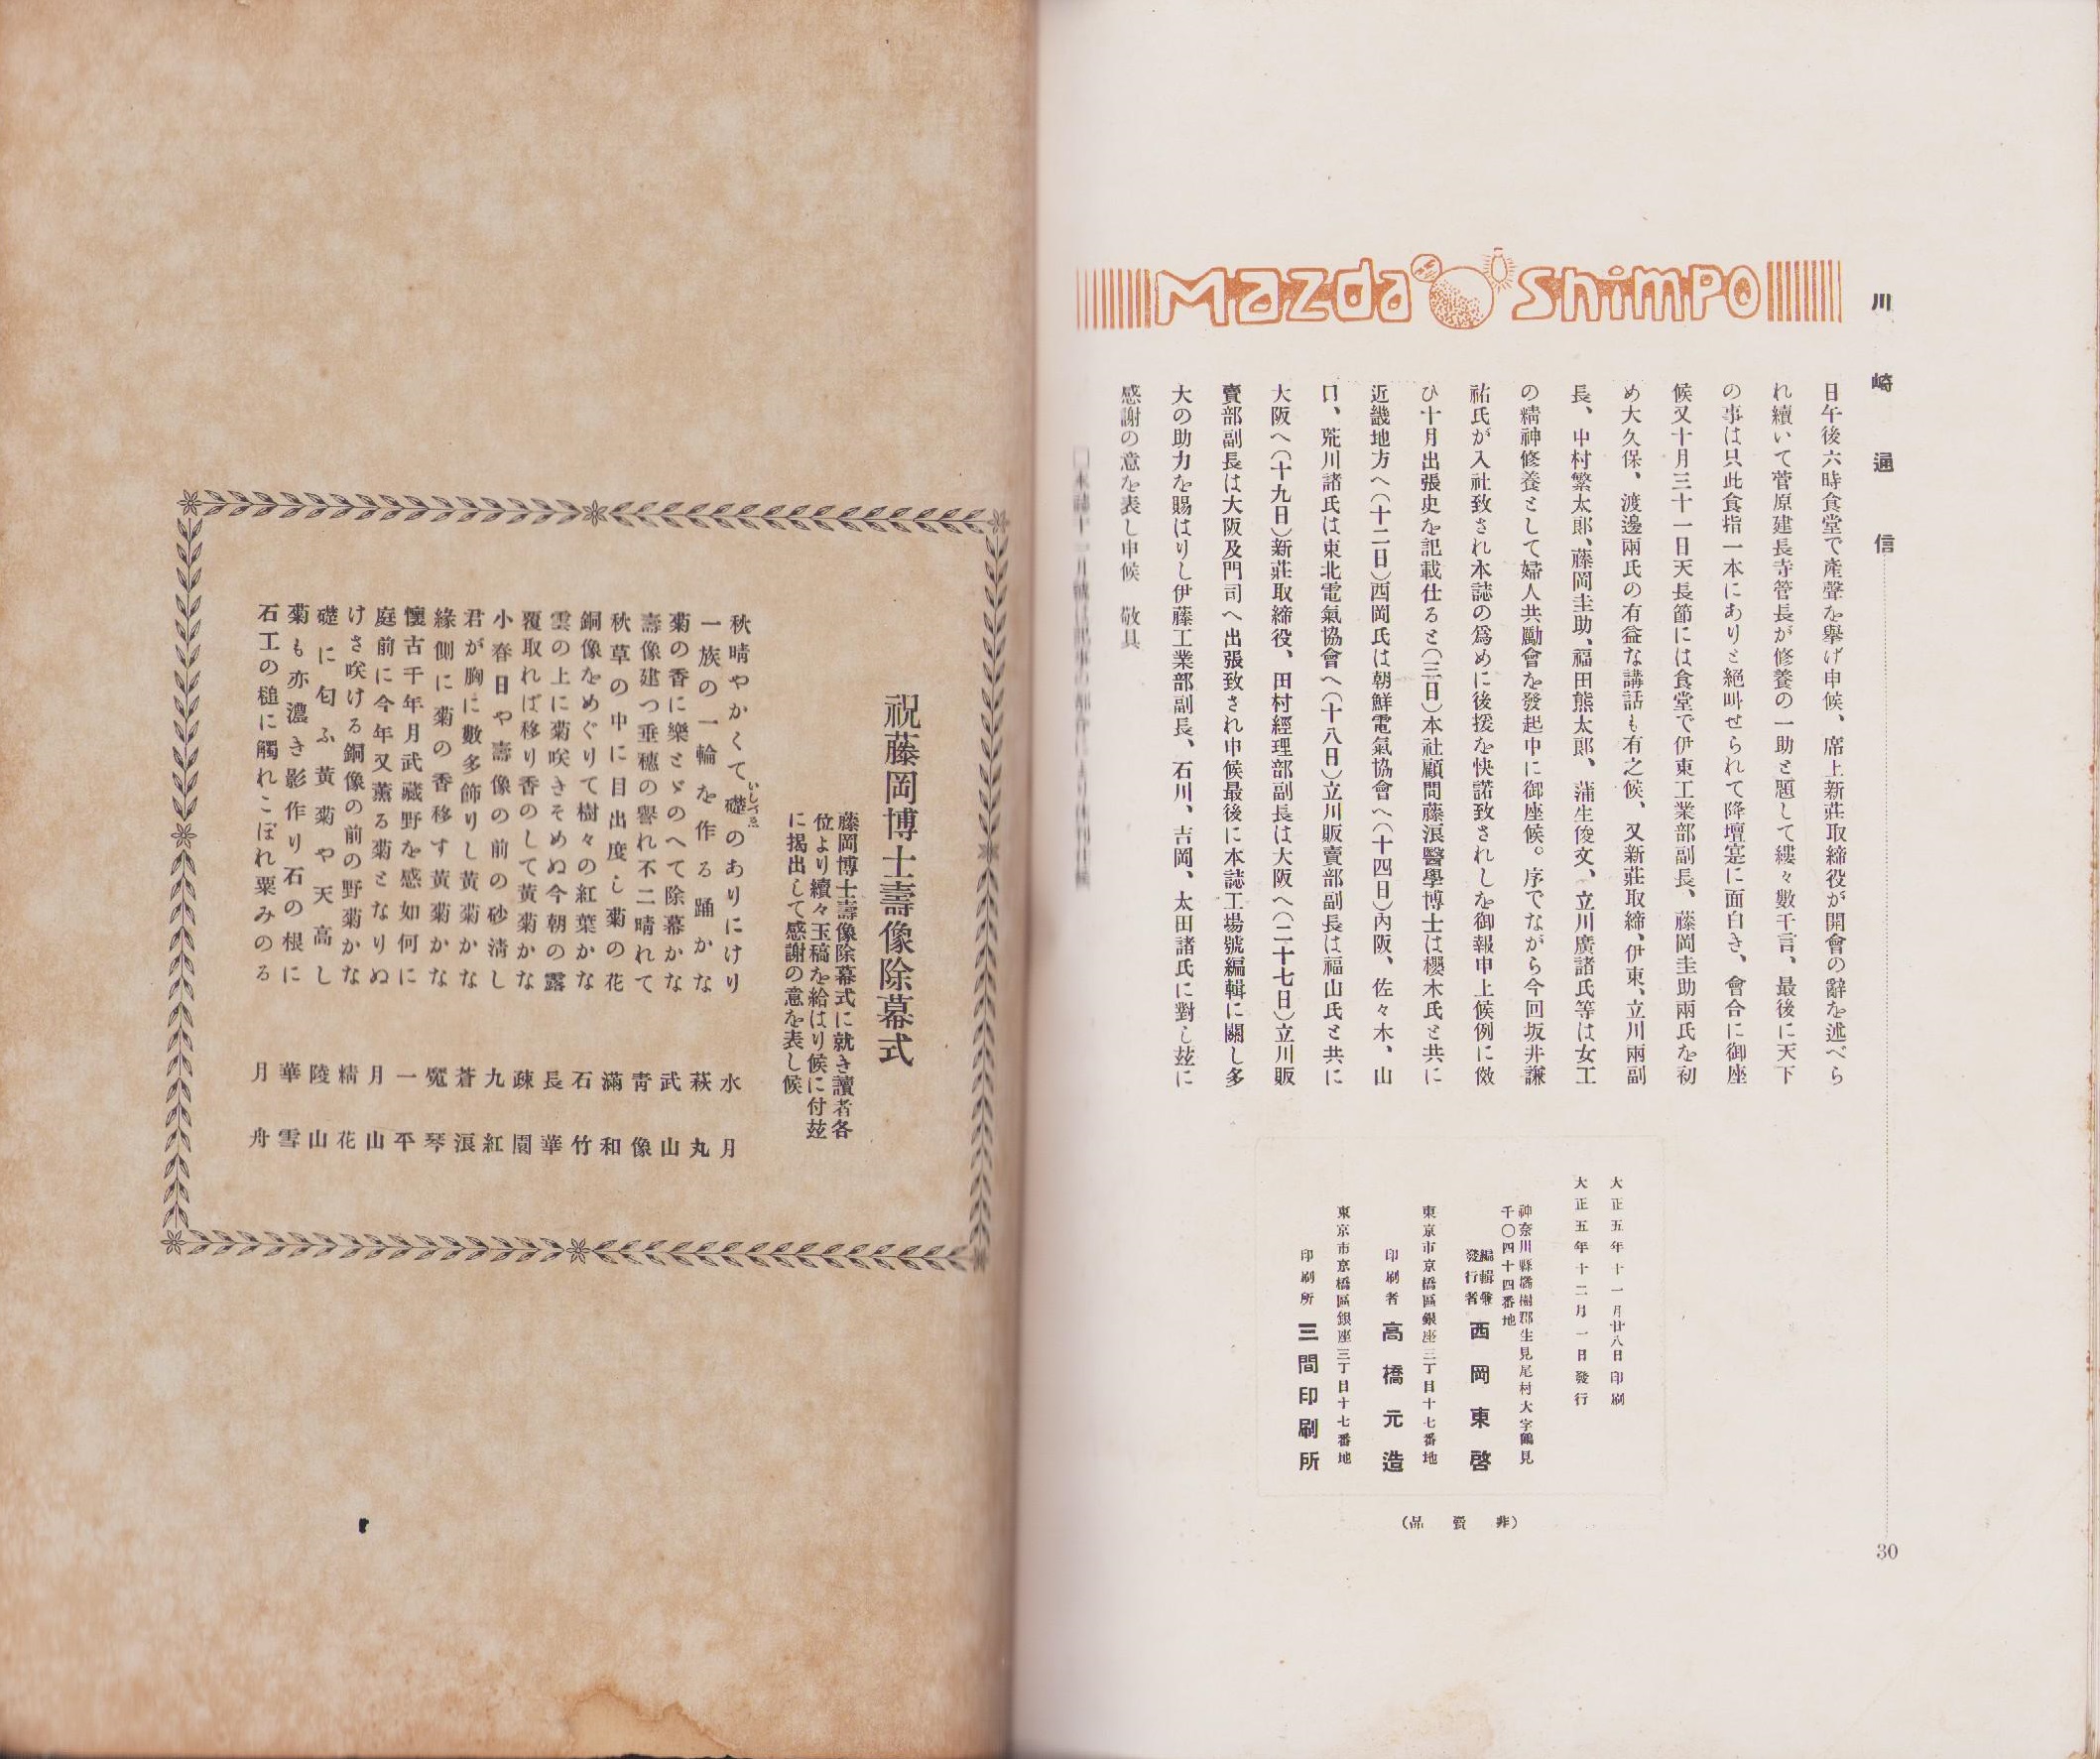 川崎通信
Mazda Shimpo
日午後六時食堂で產聲を擧げ申候、席上新莊取締役が開會の辭を述べら
れ續いて菅原建長寺管長が修養の一助と題して縷々數千言、最後に天下
の事は只此食指一本にありと絕叫せられて降壇寔に面白き、會合に御座
候又十月三十一日天長節には食堂で伊東工業部副長、藤岡圭助兩氏を初
め大久保、渡邊兩氏の有益な講話も有之候、又新莊取締、伊東、立川兩副
長、中村繁太郎、藤岡圭助、福田熊太郎、蒲生俊文、立川廣諸氏等は女工
の精神修養として婦人共勵會を發起中に御座候。序でながら今回坂井謙
祐氏が入社致され本誌の爲めに後援を快諾致されしを御報申上候例に倣
ひ十月出張史を記載仕ると(三日)本社顧問藤浪醫學博士は櫻木氏と共に
近畿地方へ(十二日)西岡氏は朝鮮電氣協會へ(十四日)內阪、佐々木、山
口、荒川諸氏は東北電氣協會へ(十八日)立川販賣部副長は福山氏と共に
大阪へ(十九日)新莊取締役、田村經理部副長は大阪へ(二十七日)立川販
賣部副長は大阪及門司へ出張致され申候最後に本誌工場號編輯に關し多
大の助力を賜はりし伊藤工業部副長、石川、吉岡、太田諸氏に對し玆に
感謝の意を表し申候　敬具
大正五年十一月廿八日印刷
大正五年十二月一日發行
神奈川縣橘樹郡生見尾村大字鶴見
千〇四十四番地
編輯兼
發行者　西岡東啓
東京市京橋區銀座三丁目十七番地
印刷者　高橋元造
東京市京橋區銀座三丁目十七番地
印刷所　三間印刷所
(非賣品)
30
祝藤岡博士壽像除幕式
藤岡博士壽像除幕式に就き讀者各
位より續々玉稿を給はり候に付玆
に揭出して感謝の意を表し候
秋晴やかくて礎のありにけり　水月
いしづゑ
一族の一輪を作る踊かな　萩丸
菊の香に樂とゞのへて除幕かな　武山
壽像建つ垂穗の譽れ不二晴れて　靑像
秋草の中に目出度し菊の花　滿和
銅像をめぐりて樹々の紅葉かな　石竹
雲の上に菊咲きそめぬ今朝の露　長華
覆取れば移り香のして黃菊かな　疎園
小春日や壽像の前の砂淸し　九紅
君が胸に數多飾りし黃菊かな　蒼浪
緣側に菊の香移す黃菊かな　魘琴
懷古千年月武藏野を感如何に　一平
庭前に今年又薰る菊となりぬ　月山
けさ咲ける銅像の前の野菊かな　精花
礎に匂ふ黃菊や天高し　陵山
菊も亦濃き影作り石の根に　華雪
石工の槌に觸れこぼれ粟みのる　月舟